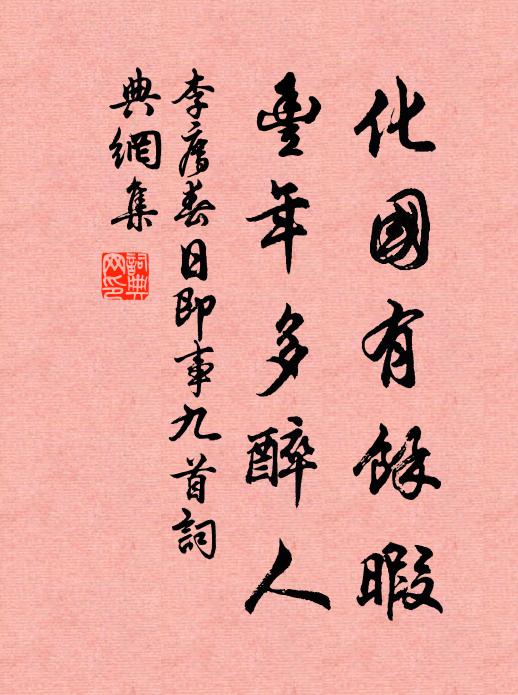 化國有餘暇
豐年多醉人
李廌春日即事九首詞
典網集
詞典網印